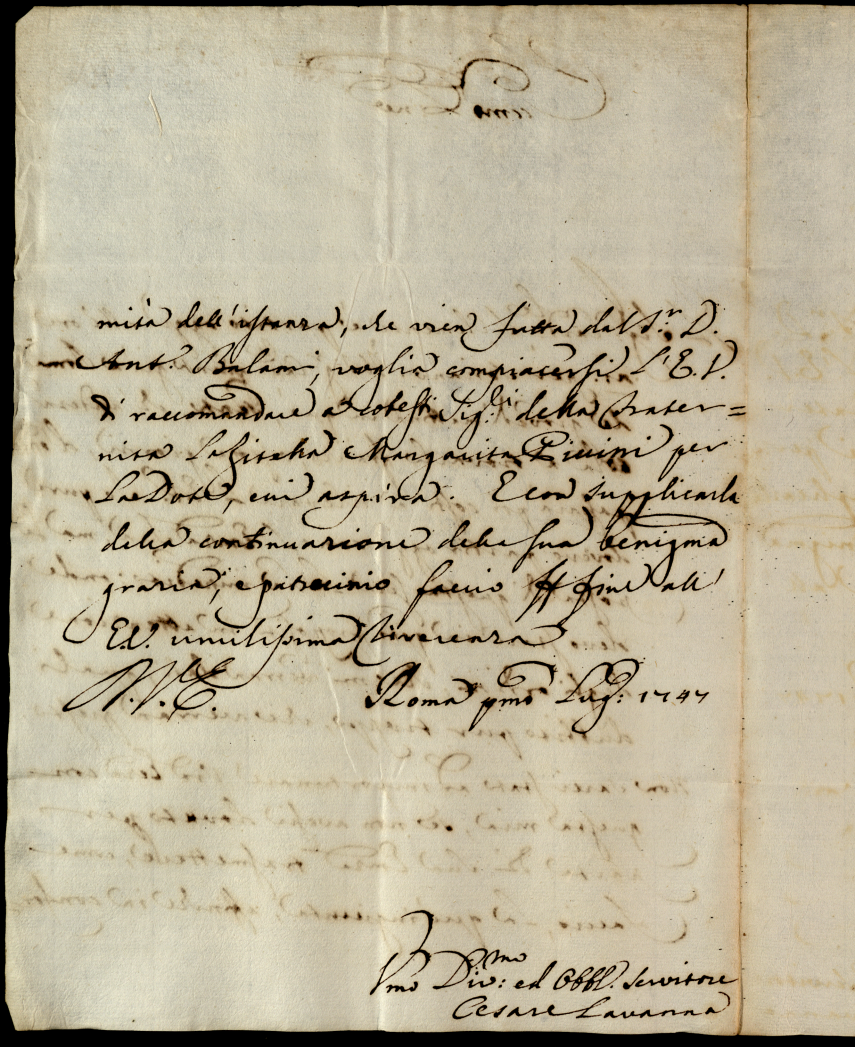 mità dell'istanza, che vien fatta dal S.r D.
Ant.o Balami, voglia compiacersi L'E.V.
di raccomandare a cotesti Sig.ri della Frater=
nita La Zitella Margarita Piccini per
La Dote, cui aspira. E con supplicarla
della continuazione della sua benigma
grazia, e patrocinio faccio fine all'
E.V. umilissima Riverenza
D.V.E. Roma pmo Lug: 1747
Vmo Div:mo ed Obbl. servitore
Cesare Lavanna